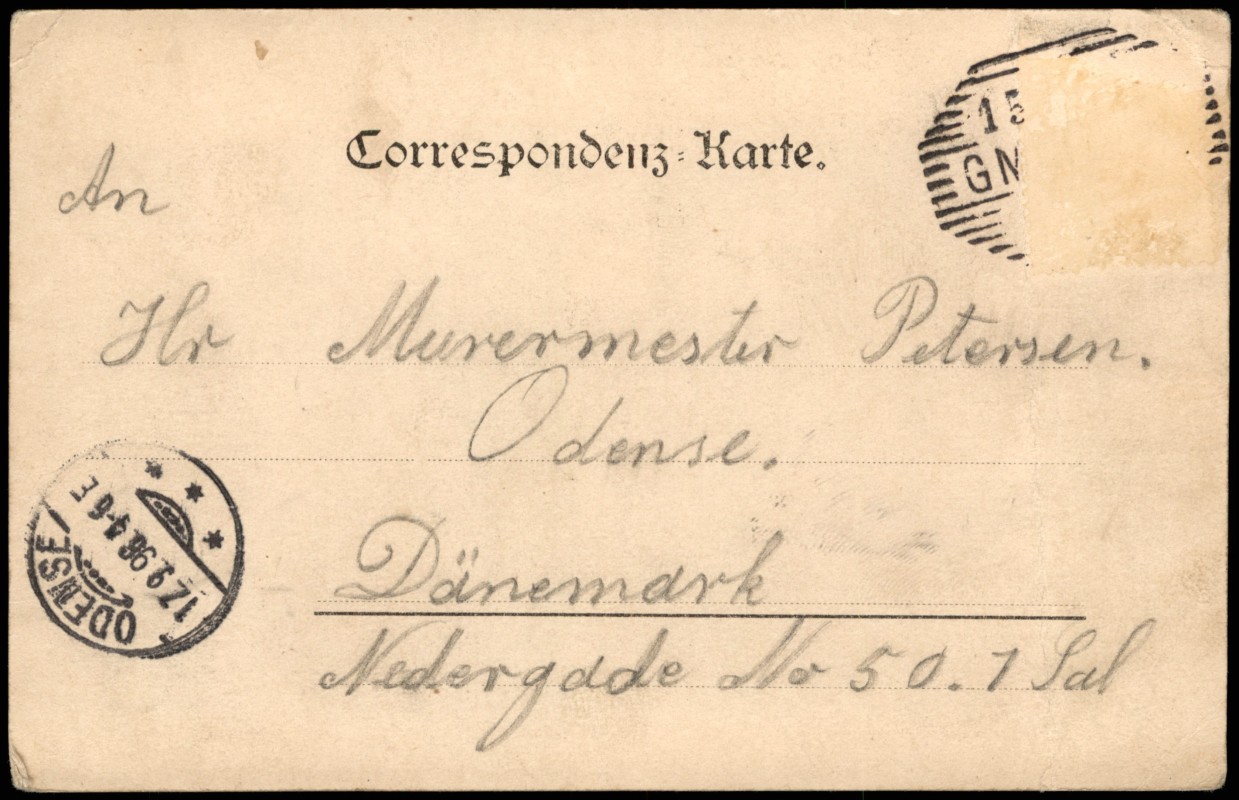 Correspondenz-Karte.
15
GN
An
Hr Murermester Petersen.
Odense.
Dänemark
Nedergade No 50. 1 Sal
ODENSE
17.9.98. 4-6 E